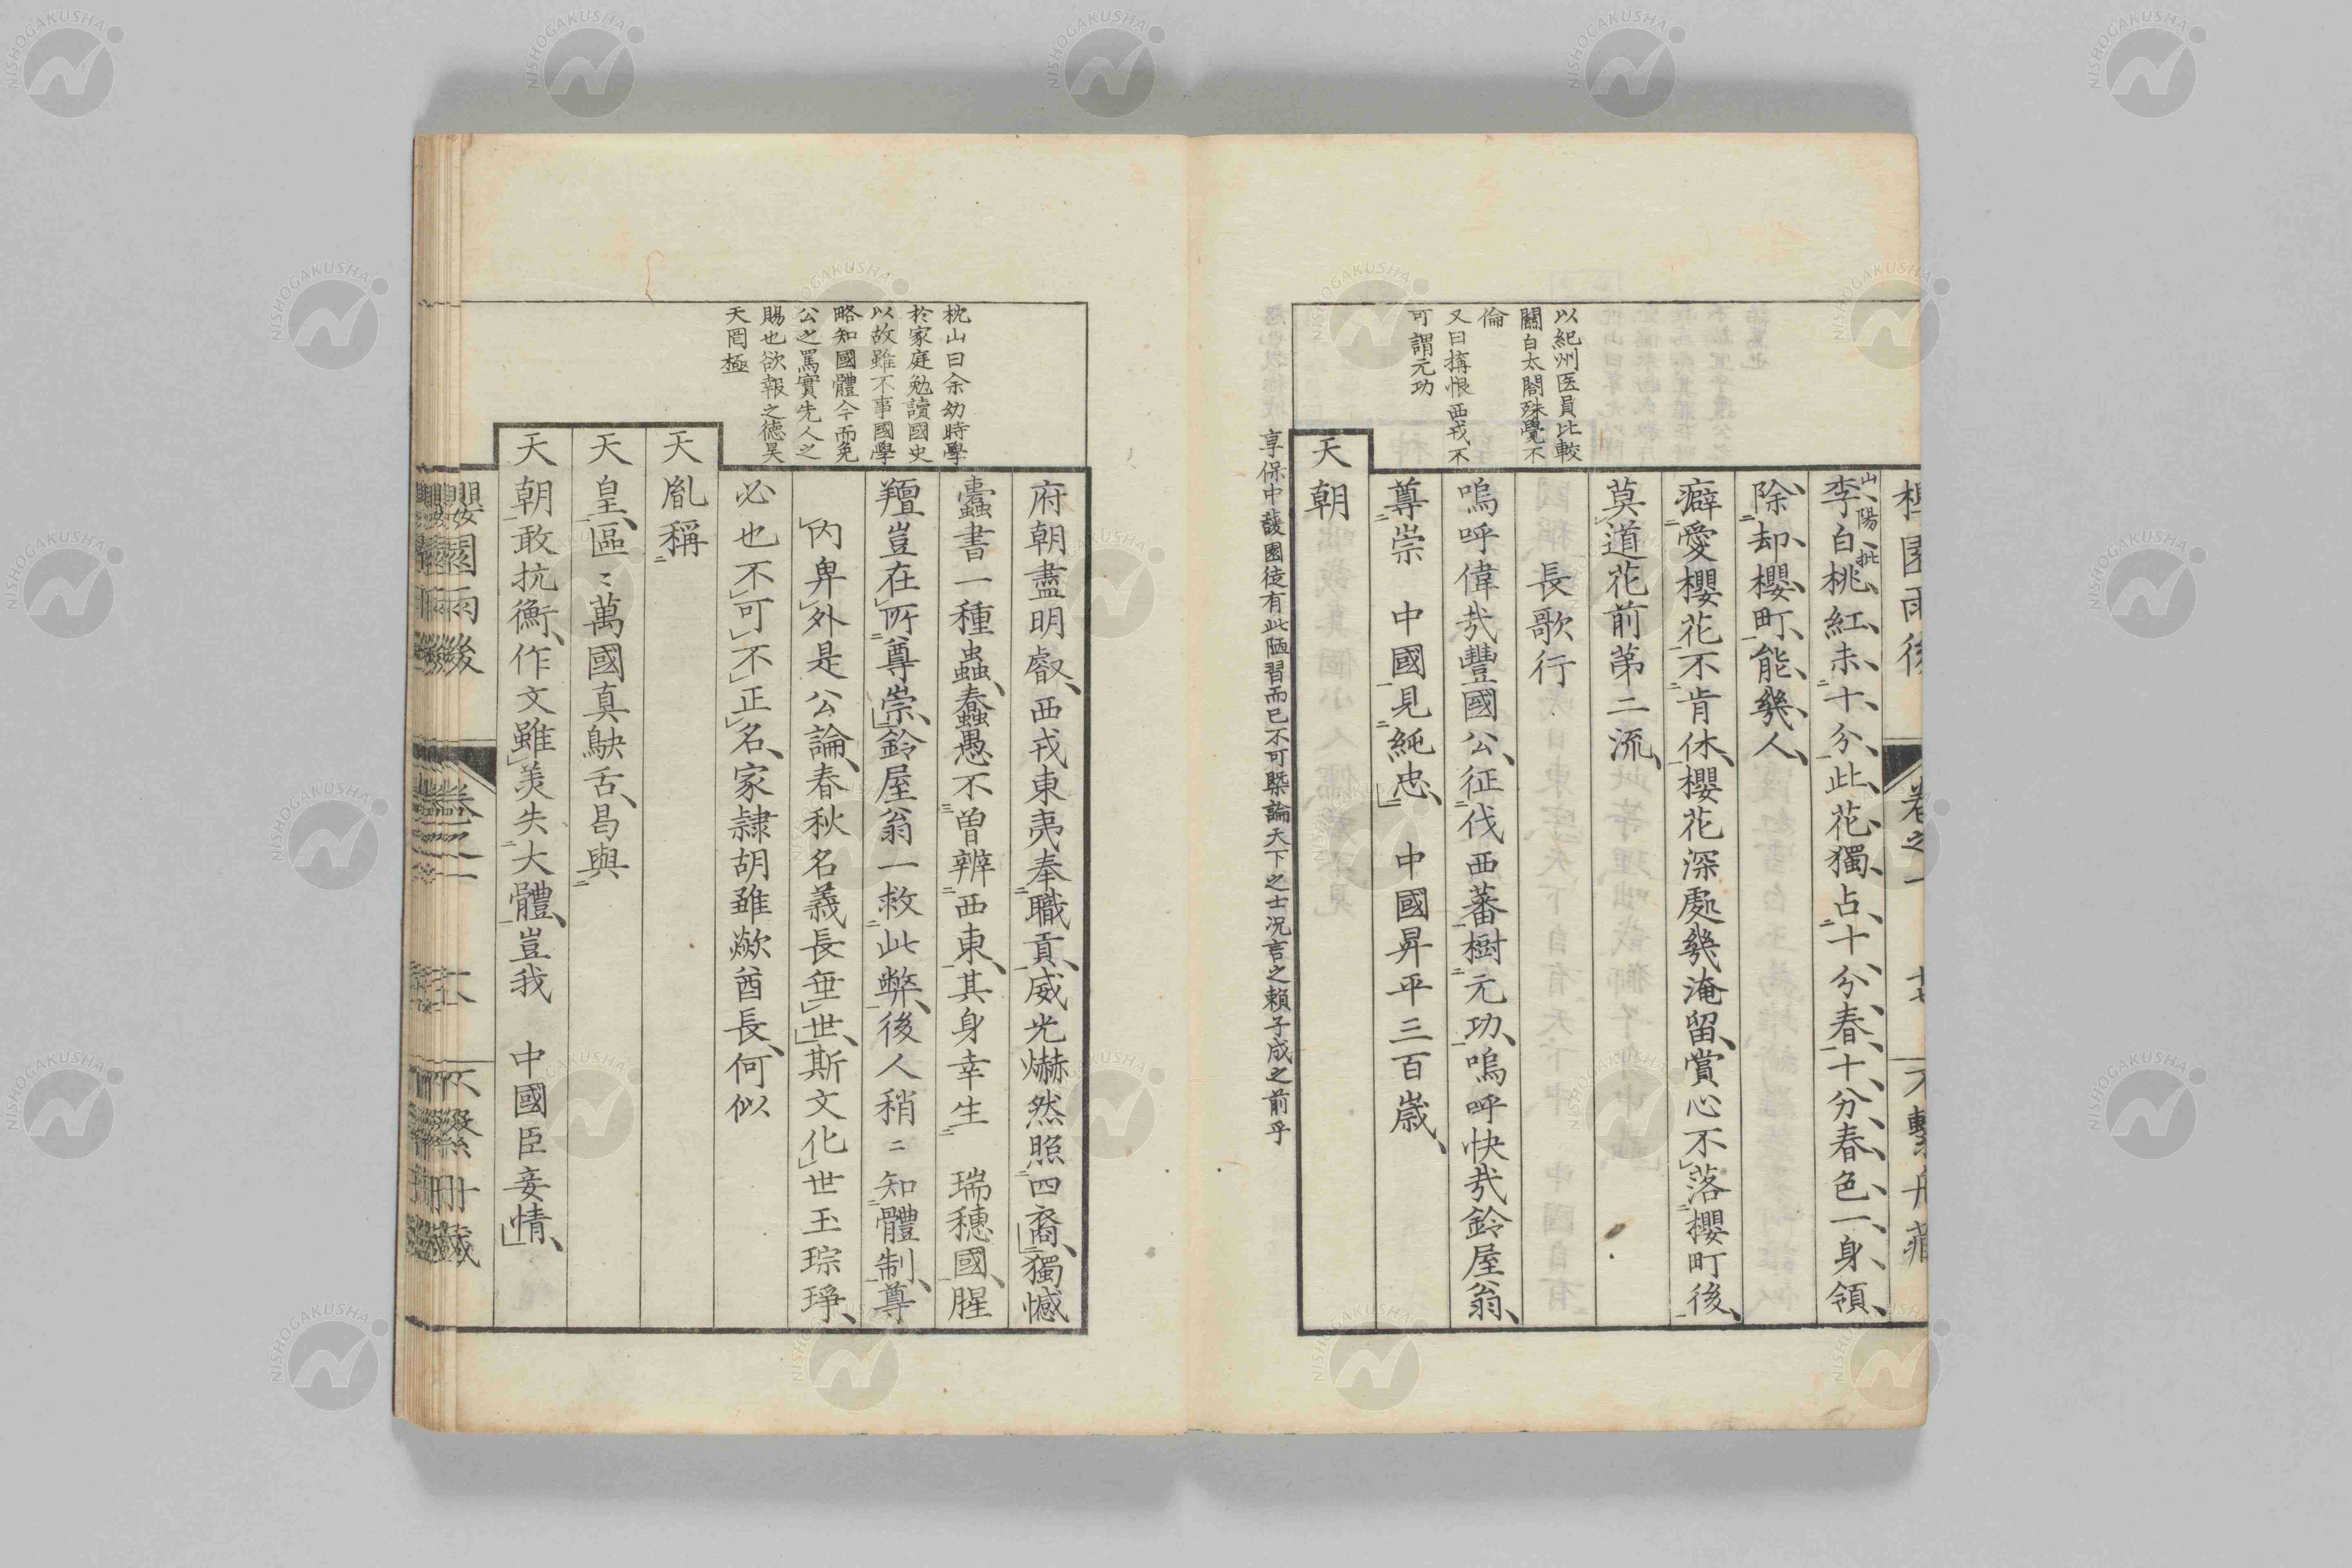 櫻園雨後　卷之一　十七　不繫舟藏
山陽批
李白桃紅未十分此花獨占十分春十分春色一身領
除却櫻町能幾人
癖愛櫻花不肯休櫻花深處幾淹留賞心不落櫻町後
莫道花前第二流
長歌行
嗚呼偉哉豐國公征伐西蕃樹元功嗚呼快哉鈴屋翁
尊崇　中國見純忠　中國昇平三百歳
天朝
以紀州医員比較
關白太閤殊覺不
倫
又曰搆恨西戎不
可謂元功
享保中蘐園徒有此陋習而已不可槩論天下之士況言之賴子成之前乎
府朝盡明叡西戎東夷奉職貢威光爀然照四裔獨憾
蠹書一種蟲蠢愚不曽辨西東其身幸生　瑞穗國腥
羶豈在所尊崇鈴屋翁一救此弊後人稍〻知體制尊
內卑外是公論春秋名義長垂世斯文化世玉琮琤
必也不可不正名家隷胡雖歘酋長何似
天胤稱
天皇區〻萬國真鴃舌曷與
天朝敢抗衡作文雖美失大體豈我　中國臣妾情
枕山曰余幼時學
於家庭勉讀國史
以故雖不事國學
略知國體今而免
公之罵實先人之
賜也欲報之德昊
天罔極
櫻園雨後　卷之一　不繫舟藏
NISHOGAKUSHA